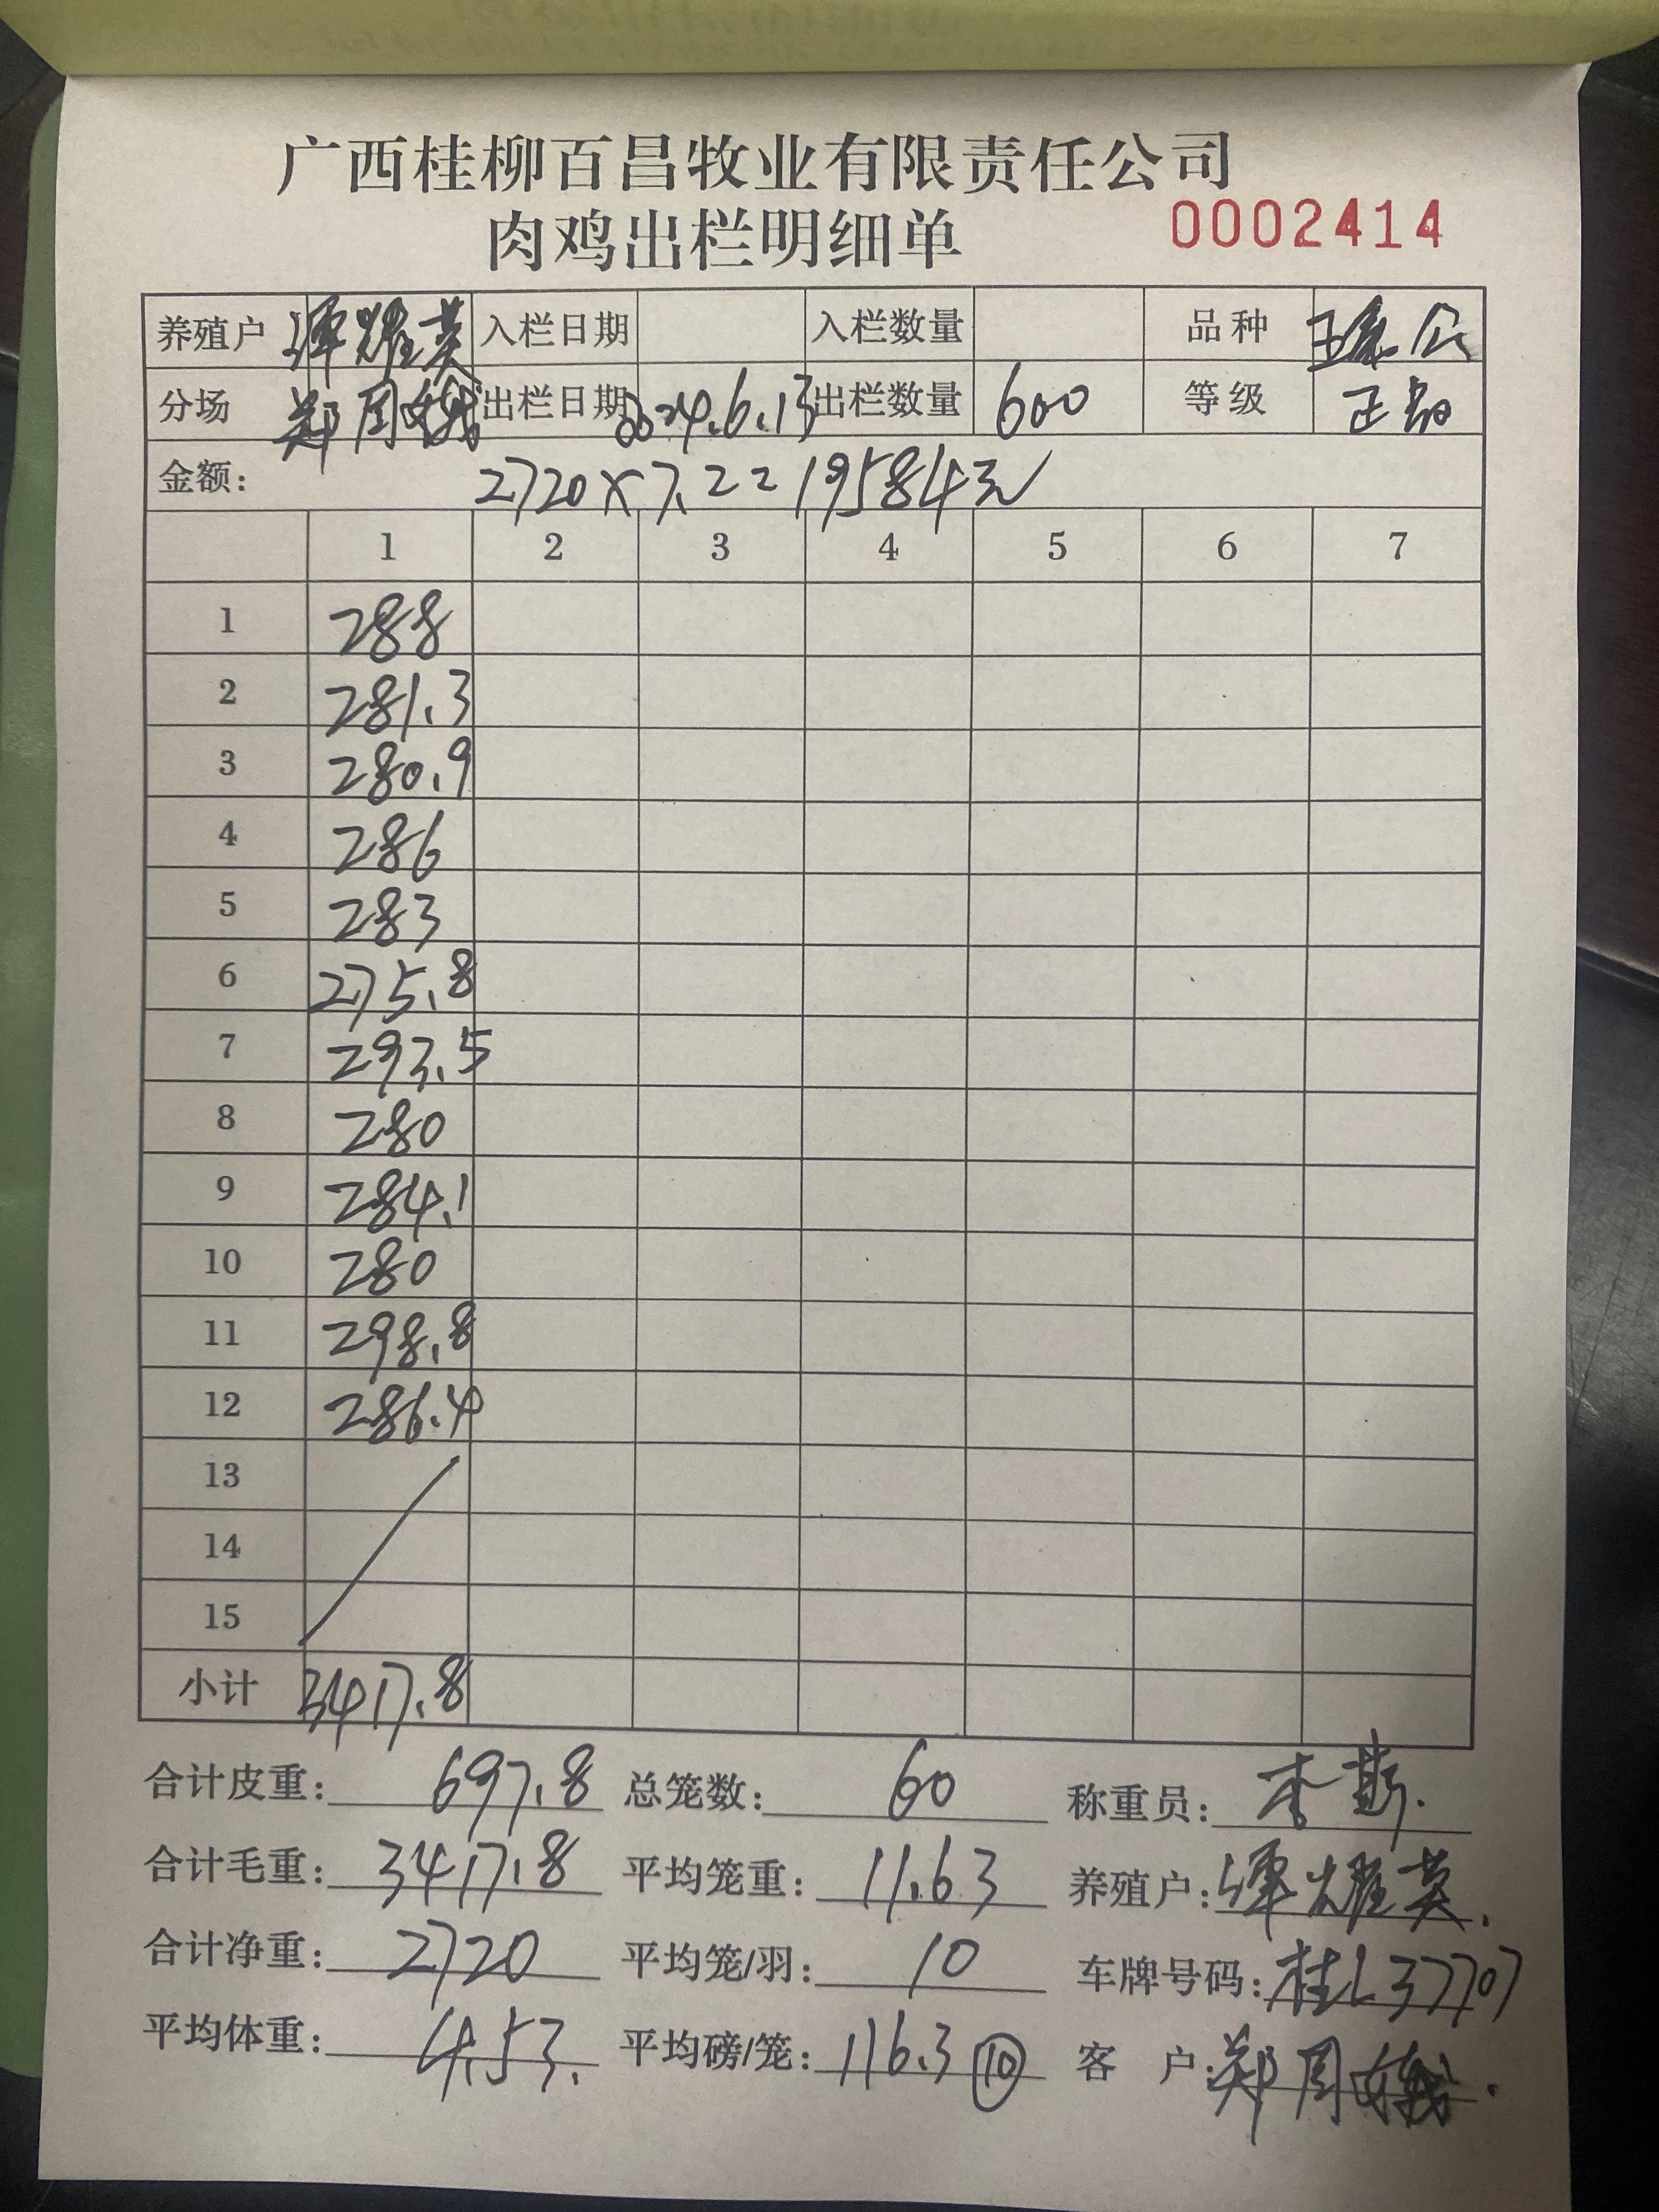 广西桂柳百昌牧业有限责任公司
肉鸡出栏明细单 0002414
养殖户 谭耀英 入栏日期 入栏数量 品种 公
分场 郑周娥 出栏日期 2024.6.13 出栏数量 600 等级 正品
金额: 2720×7.2=19584元
1 2 3 4 5 6 7
1 288
2 281.3
3 280.9
4 286
5 283
6 275.8
7 293.5
8 280
9 284.1
10 280
11 298.8
12 286.4
13
14
15
小计 3417.8
合计皮重: 697.8 总笼数: 60 称重员: 李
合计毛重: 3417.8 平均笼重: 11.63 养殖户: 谭耀英.
合计净重: 2720 平均笼/羽: 10 车牌号码: 桂L37707
平均体重: 4.53. 平均磅/笼: 116.3 ⑩ 客 户: 郑周娥.